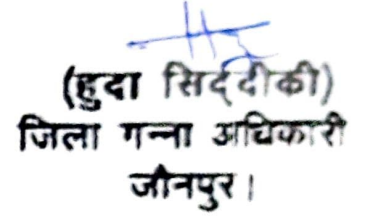 (हुदा सिद्दीकी)
जिला गन्ना अधिकारी
जौनपुर।